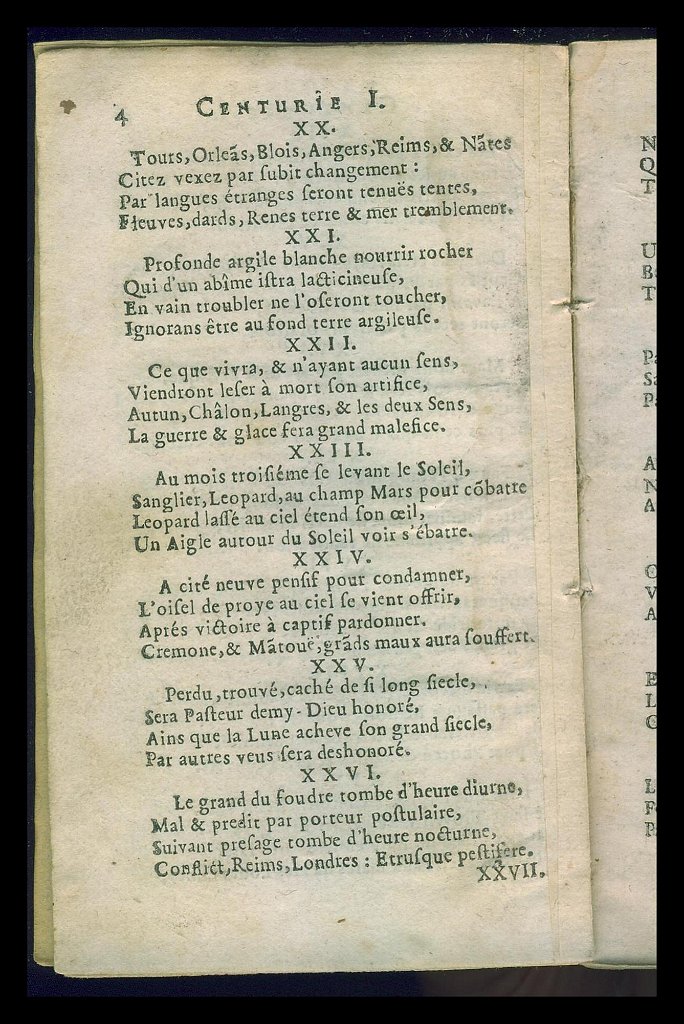 4 CENTURIE I.
XX.
Tours, Orleãs, Blois, Angers, Reims, & Nãtes
Citez vexez par ſubit changement :
Par langues étranges ſeront tenuës tentes,
Fleuves, dards, Renes terre & mer tremblement.
XXI.
Profonde argile blanche nourrir rocher
Qui d'un abîme iſtra lacticineuſe,
En vain troubler ne l'oſeront toucher,
Ignorans être au fond terre argileuſe.
XXII.
Ce que vivra, & n'ayant aucun ſens,
Viendront leſer à mort ſon artifice,
Autun, Châlon, Langres, & les deux Sens,
La guerre & glace fera grand malefice.
XXIII.
Au mois troiſiéme ſe levant le Soleil,
Sanglier, Leopard, au champ Mars pour cõbatre
Leopard laſſé au ciel étend ſon œil,
Un Aigle autour du Soleil voir s'ébatre.
XXIV.
A cité neuve penſif pour condamner,
L'oiſel de proye au ciel ſe vient offrir,
Aprés victoire à captif pardonner.
Cremone, & Mãtouë, grãds maux aura ſouffert.
XXV.
Perdu, trouvé, caché de ſi long ſiecle,
Sera Paſteur demy-Dieu honoré,
Ains que la Lune acheve ſon grand ſiecle,
Par autres veus ſera deshonoré.
XXVI.
Le grand du foudre tombe d'heure diurne,
Mal & predit par porteur poſtulaire,
Suivant preſage tombe d'heure nocturne,
Conflict, Reims, Londres : Etruſque peſtifere.
XXVII.